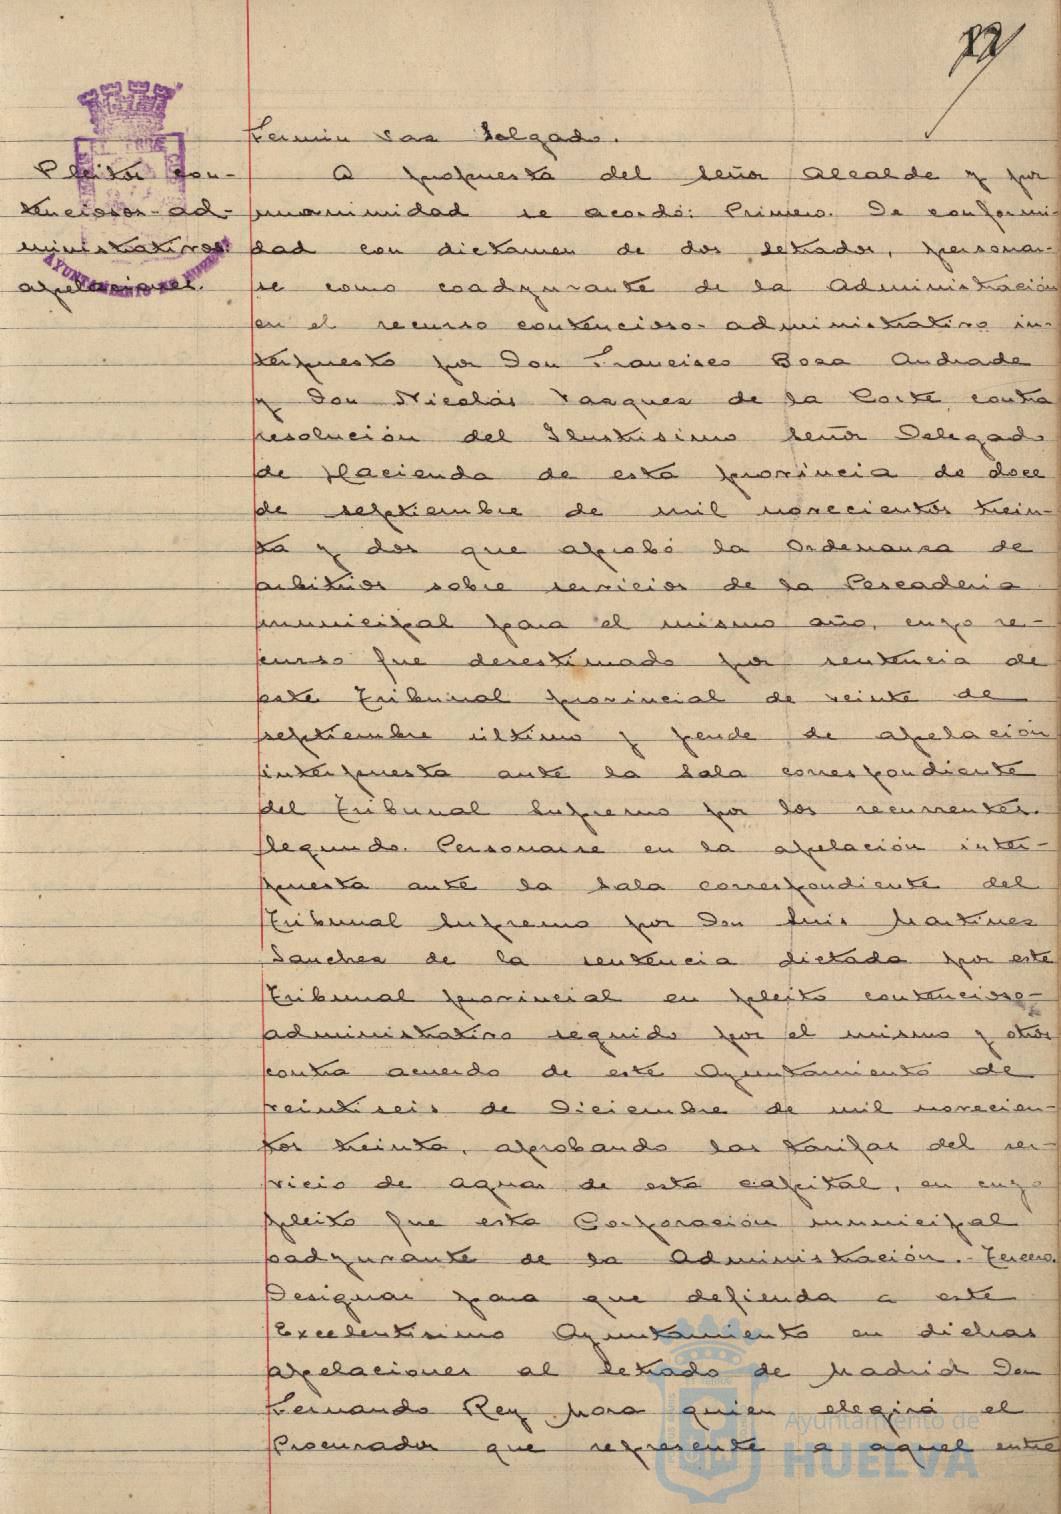 Fermin Vaz Salgado.
Pleitos con-
tenciosos-ad-
ministrativos:
apelaciones.
A propuesta del señor Alcalde y por
unanimidad se acordó: Primero. De conformi-
dad con dictamen de dos letrados, personar-
se como coadyuvante de la Administración
en el recurso contencioso-administrativo in-
terpuesto por Don Francisco Boza Andrade
y Don Nicolás Vazquez de la Corte, contra
resolución del Ilustrisimo Señor Delegado
de Hacienda de esta provincia de doce
de septiembre de mil novecientos trein-
ta y dos que aprobó la Ordenanza de
arbitrios sobre servicios de la Pescaderia
municipal para el mismo año, cuyo re-
curso fue desestimado por sentencia de
este Tribunal provincial de veinte de
septiembre último y pende de apelación
interpuesta ante la Sala correspondiente
del Tribunal Supremo por los recurrentes.
Segundo. Personarse en la apelación inter-
puesta ante la Sala correspondiente del
Tribunal Supremo por Don Luis Martinez
Sanchez de la sentencia dictada por este
Tribunal provincial en pleito contencioso-
administrativo seguido por el mismo y otros
contra acuerdo de este Ayuntamiento de
veintiseis de Diciembre de mil novecien-
tos treinta, aprobando las tarifas del ser-
vicio de aguas de esta capital, en cuyo
pleito fue esta Corporación municipal
coadyuvante de la Administración.- Tercero.
Designar para que defienda a este
Excelentisimo Ayuntamiento en dichas
apelaciones al letrado de Madrid Don
Fernando Rey, para quien elegirá el
Procurador que represente a aquel entre
AYUNTAMIENTO DE HUELVA
Ayuntamiento de
HUELVA